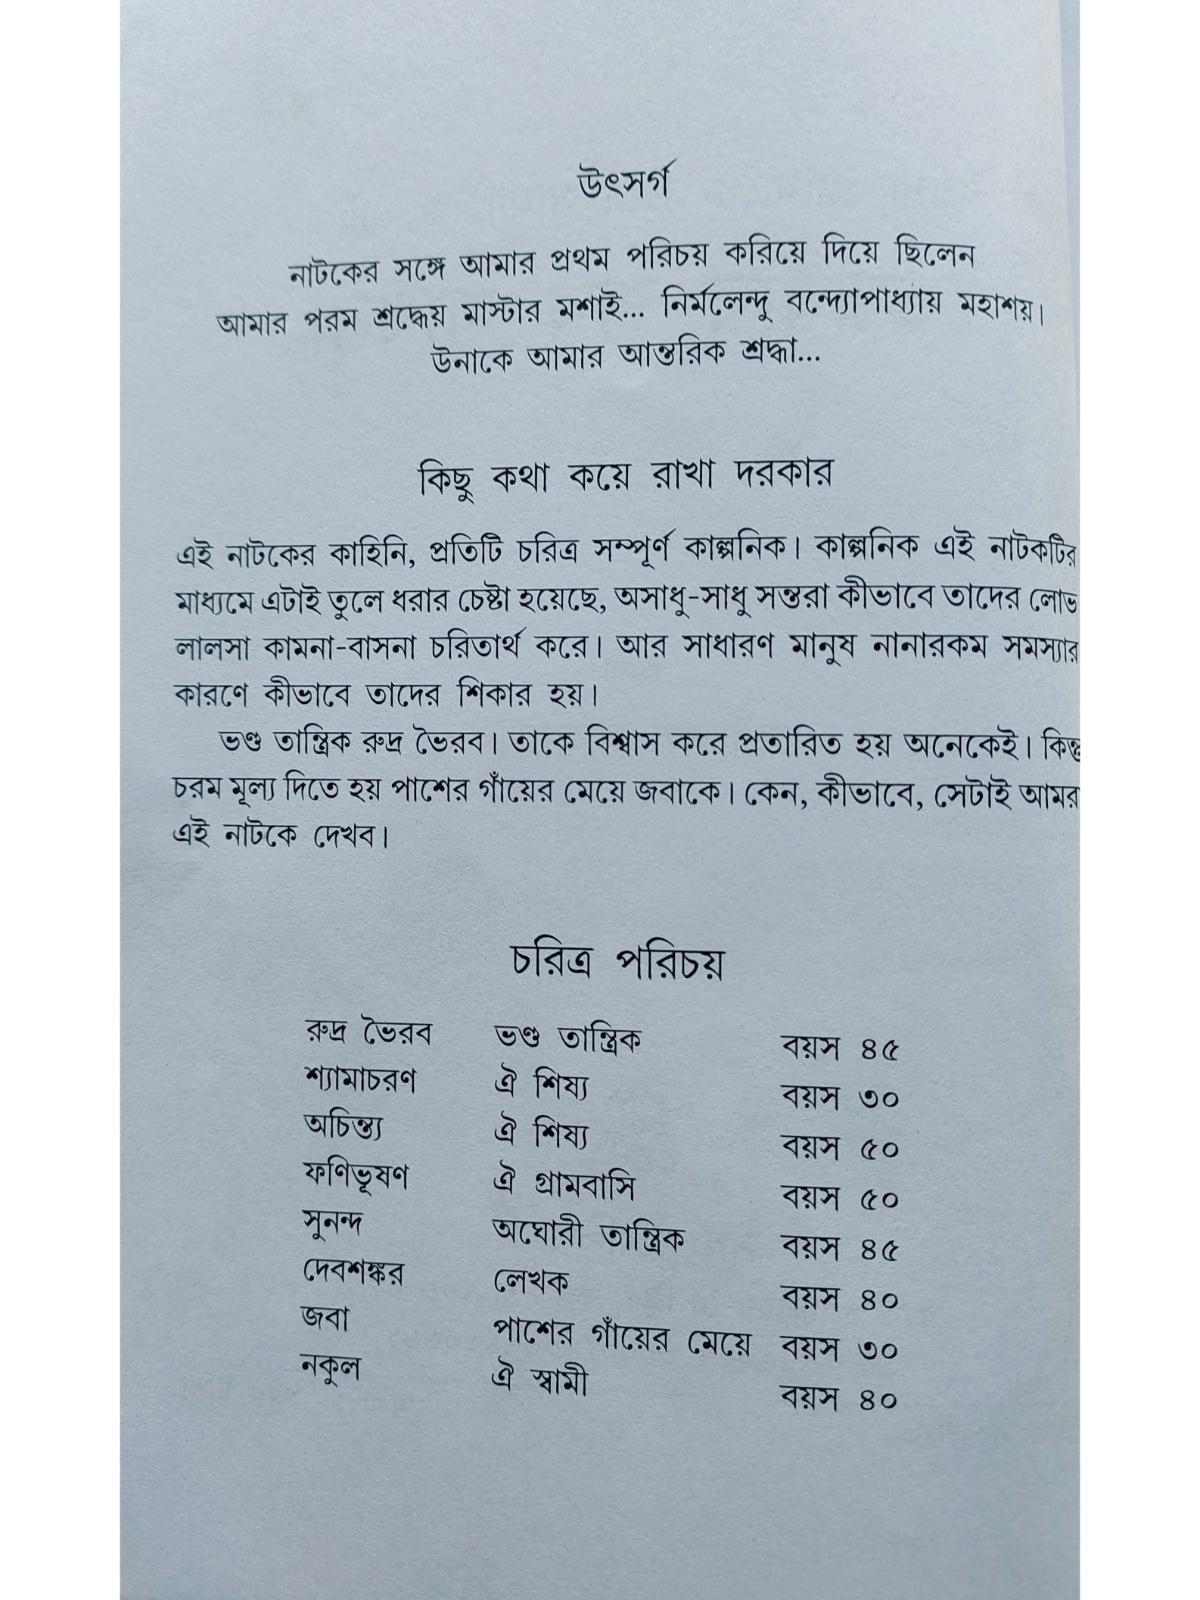 উৎসর্গ
নাটকের সঙ্গে আমার প্রথম পরিচয় করিয়ে দিয়ে ছিলেন
আমার পরম শ্রদ্ধেয় মাস্টার মশাই... নির্মলেন্দু বন্দ্যোপাধ্যায় মহাশয়।
উনাকে আমার আন্তরিক শ্রদ্ধা...
কিছু কথা কয়ে রাখা দরকার
এই নাটকের কাহিনি, প্রতিটি চরিত্র সম্পূর্ণ কাল্পনিক। কাল্পনিক এই নাটকটির
মাধ্যমে এটাই তুলে ধরার চেষ্টা হয়েছে, অসাধু-সাধু সন্তরা কীভাবে তাদের লোভ
লালসা কামনা-বাসনা চরিতার্থ করে। আর সাধারণ মানুষ নানারকম সমস্যার
কারণে কীভাবে তাদের শিকার হয়।
ভণ্ড তান্ত্রিক রুদ্র ভৈরব। তাকে বিশ্বাস করে প্রতারিত হয় অনেকেই। কিন্তু
চরম মূল্য দিতে হয় পাশের গাঁয়ের মেয়ে জবাকে। কেন, কীভাবে, সেটাই আমর
এই নাটকে দেখব।
চরিত্র পরিচয়
রুদ্র ভৈরব ভণ্ড তান্ত্রিক বয়স ৪৫
শ্যামাচরণ ঐ শিষ্য বয়স ৩০
অচিন্ত্য ঐ শিষ্য বয়স ৫০
ফণিভূষণ ঐ গ্রামবাসি বয়স ৫০
সুনন্দ অঘোরী তান্ত্রিক বয়স ৪৫
দেবশঙ্কর লেখক বয়স ৪০
জবা পাশের গাঁয়ের মেয়ে বয়স ৩০
নকুল ঐ স্বামী বয়স ৪০